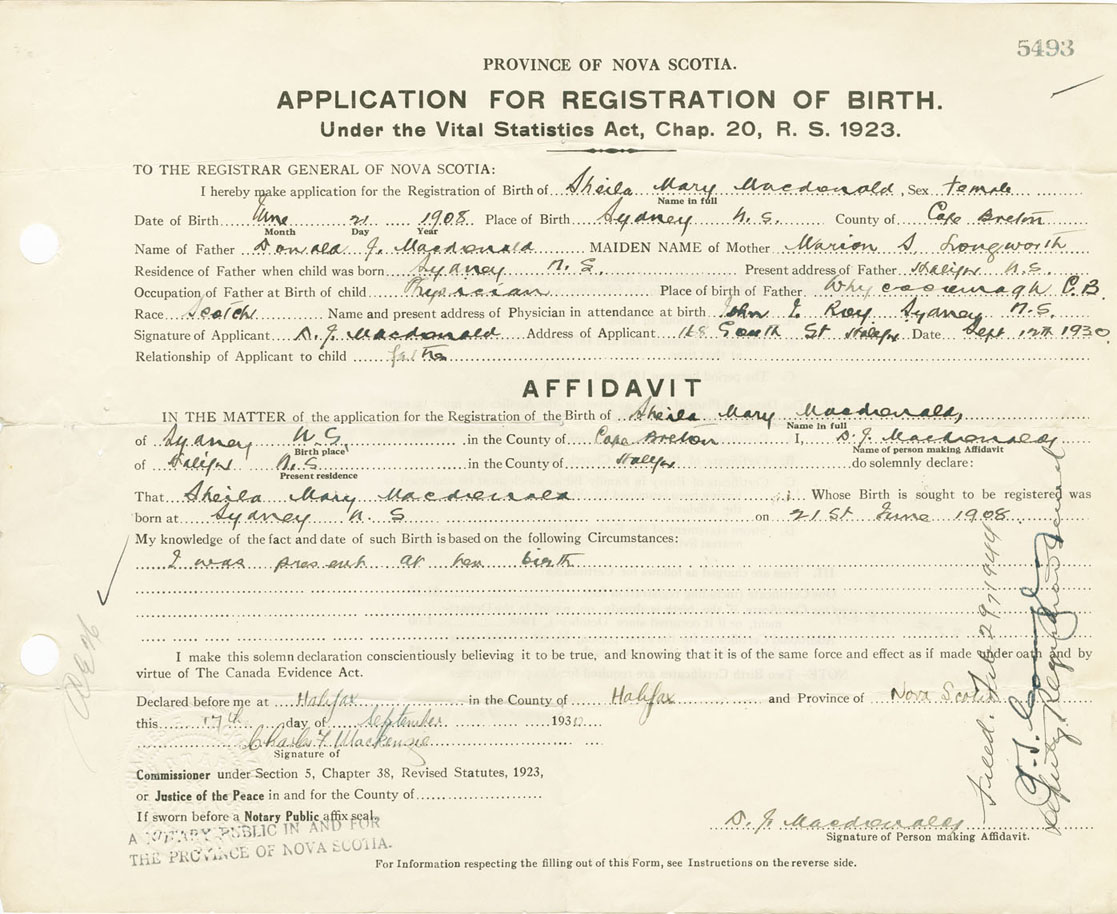 5493
PROVINCE OF NOVA SCOTIA.
APPLICATION FOR REGISTRATION OF BIRTH.
Under the Vital Statistics Act, Chap. 20, R. S. 1923.
TO THE REGISTRAR GENERAL OF NOVA SCOTIA:
I hereby make application for the Registration of Birth of Sheila Mary Macdonald, Sex female
Name in full
Date of Birth June 21 1908 Place of Birth Sydney N. S. County of Cape Breton
Month Day Year
Name of Father Donald J. Macdonald MAIDEN NAME of Mother Marion S. Longworth
Residence of Father when child was born Sydney N. S. Present address of Father Halifax N. S.
Occupation of Father at Birth of child Physician Place of birth of Father Whycocomagh C. B.
Race Scotch Name and present address of Physician in attendance at birth John Roy Sydney N. S.
Signature of Applicant D. J. Macdonald Address of Applicant South St Halifax Date Sept 12th 1930
Relationship of Applicant to child father
AFFIDAVIT
IN THE MATTER of the application for the Registration of the Birth of Sheila Mary Macdonald,
Name in full
of Sydney N. S. in the County of Cape Breton I, D. J. Macdonald
Birth place Name of person making Affidavit
of Halifax N. S in the County of Halifax do solemnly declare:
Present residence
That Sheila Mary Macdonald Whose Birth is sought to be registered was
born at Sydney N. S on 21st June 1908
My knowledge of the fact and date of such Birth is based on the following Circumstances:
I was present at her birth
I make this solemn declaration conscientiously believing it to be true, and knowing that it is of the same force and effect as if made under oath and by
virtue of The Canada Evidence Act.
Declared before me at Halifax in the County of Halifax and Province of Nova Scotia
this 17th day of September 1930
Charles F. Mackenzie
Signature of
Commissioner under Section 5, Chapter 38, Revised Statutes, 1923,
or Justice of the Peace in and for the County of
If sworn before a Notary Public affix seal.
A NOTARY PUBLIC IN AND FOR
THE PROVINCE OF NOVA SCOTIA.
D. J. Macdonald
Signature of Person making Affidavit.
For Information respecting the filling out of this Form, see Instructions on the reverse side.
Deputy Registrar General